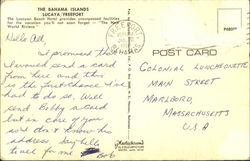 THE BAHAMA ISLANDS
LUCAYA/FREEPORT
The Lucayan Beach Hotel provides unsurpassed facilities
for the vacation you'll not soon forget - "The New
World Riviera"
Hello All,
I promised that
I would send a card
from here and this
is the first chance I've
had to do so. Will
send Bobby a card
but in case if you
don't know his
address say hello
to all for me
Bob
FREEPORT
BAHAMAS
POST CARD
COLONIAL LUNCHEONETTE
MAIN STREET
MARLBORO,
MASSACHUSETTS
U.S.A